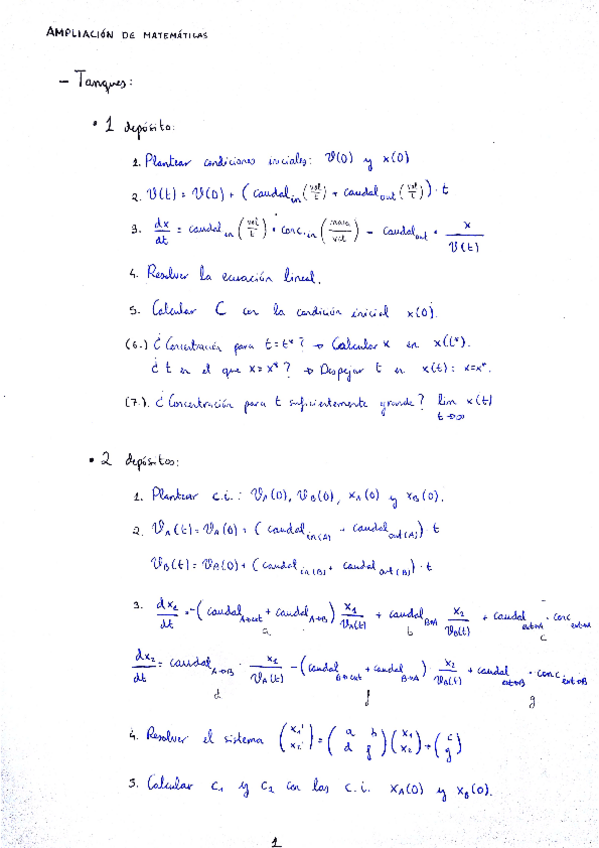 AMPLIACIÓN DE MATEMÁTICAS
- Tanques:
• 1 depósito:
1. Plantear condiciones iniciales: V(0) y x(0)
2. V(t) = V(0) + (caudal in (vol/t) + caudal out (vol/t)) · t
3. dx/dt = caudal in (vol/t) · conc. in (masa/vol) - caudal out · x/V(t)
4. Resolver la ecuación lineal.
5. Calcular C con la condición inicial x(0).
(6.) ¿Concentración para t=t*? → Calcular x en x(t*).
¿t en el que x=x*? → Despejar t en x(t): x=x*.
(7.) ¿Concentración para t suficientemente grande? lim x(t)
t→∞
• 2 depósitos:
1. Plantear c.i.: VA(0), VB(0), xA(0) y xB(0).
2. VA(t) = VA(0) = (caudal in(A) - caudal out(A)) t
VB(t) = VB(0) + (caudal in(B) + caudal out(B)) · t
3. dx1/dt = -(caudal A→out + caudal A→B) x1/VA(t) + caudal B→A x2/VB(t) + caudal ext→A · conc ext→A
a b c
dx2/dt = caudal A→B · x1/VA(t) - (caudal B→out + caudal B→A) x2/VA(t) + caudal ext→B · conc ext→B
d f g
4. Resolver el sistema (x1' x2') = (a b d f)(x1 x2) + (c g)
5. Calcular c1 y c2 con las c.i. xA(0) y xB(0).
1